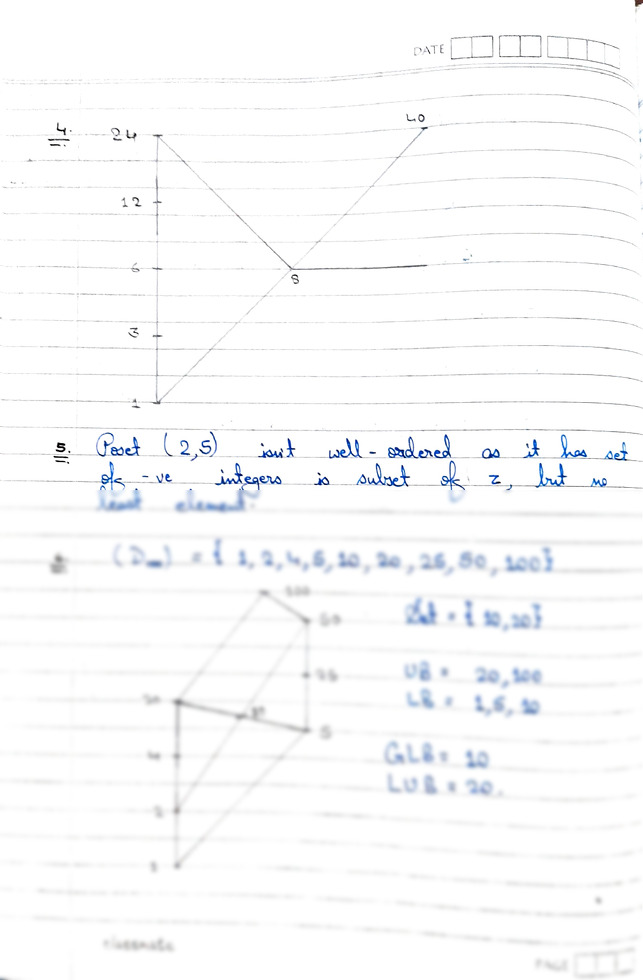 DATE
4. 24
40
12
6
8
3
1
5. Poset (2,5) isn't well-ordered as it has set
of -ve integers is subset of z, but no
least element.
(D) = { 1, 2, 4, 5, 10, 20, 25, 50, 100}
100
50
Set = { 10, 20}
25
UB = 20, 100
20
LB = 1, 5, 10
10
5
4
GLB = 10
LUB = 20.
2
1
classmate
PAGE